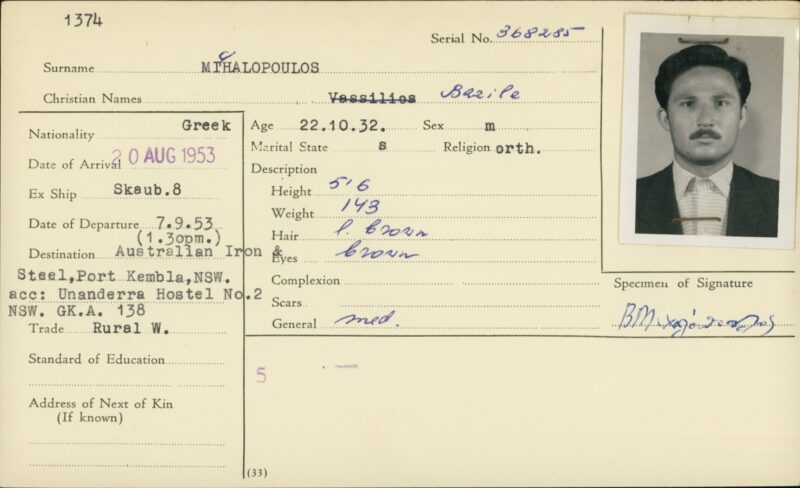 1374
Serial No. 368285
Surname MIHALOPOULOS
Christian Names Vassilios Bazile
Nationality Greek
Date of Arrival 20 AUG 1953
Ex Ship Skaub.8
Date of Departure 7.9.53
(1.30pm.)
Destination Australian Iron &
Steel,Port Kembla,NSW.
acc: Unanderra Hostel No.2
NSW. GK.A. 138
Trade Rural W.
Standard of Education
Address of Next of Kin
(If known)
Age 22.10.32. Sex m
Marital State s Religion orth.
Description
Height 5'6
Weight 143
Hair l. brown
Eyes brown
Complexion
Scars
General med.
Specimen of Signature
5
(33)